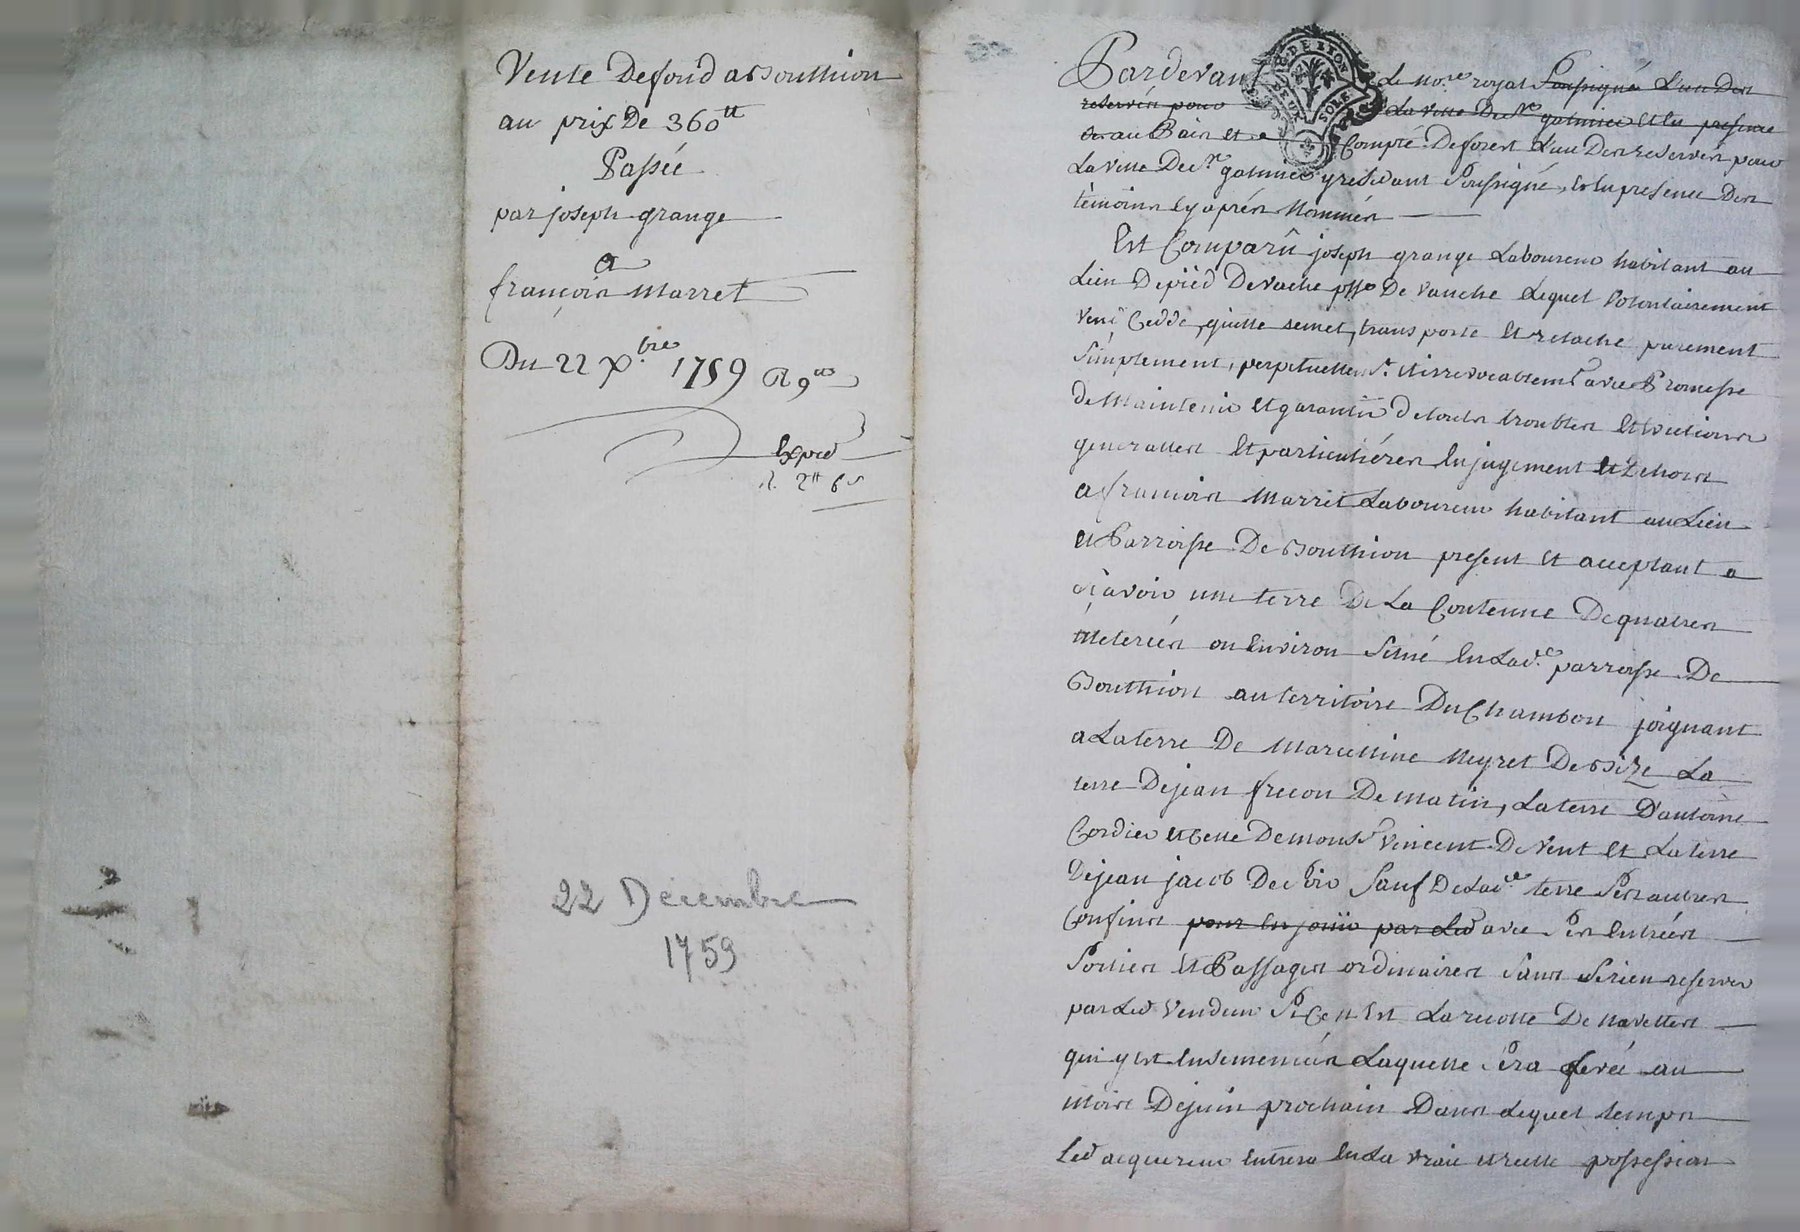 Vente de fond a Bouthion
au prix de 360tt
Passée
par joseph grange
a
françois Marret
Du 22 Xbre 1759
Exped
2tt 6s
22 Décembre
1759
Pardevant Le nore royal soussigné L'un des
reservés pour La ville De St galmier et en presence
Comté De forest L'un Des reservés pour
La ville De St galmier y residant soussigné, et en presence Des
témoins cy aprés Nommés
Est Comparû joseph grange Laboureur habitant au
Lieu De pied De vache psse De vauche Lequel volontairement
vend Cedde, quitte remet, transporte et relache purement
simplement, perpetuellemt. et irrevocablemt avec Promesse
de Maintenir et garantir de touts troubles et evictions
generalles et particuliéres en jugement et dehors
a françois Marret Laboureur habitant au Lieu
et Parroisse De Bouthion present et acceptant a
sçavoir une terre De La Contenue De quatres
Meterées ou environ Situé en Lade. parroisse De
Bouthion au territoire Du Chambon joignant
a La terre De Marcelline Neyret De Bize La
terre De jean frecon De matin, La terre D'antoine
Cordier et celle De monsr vincent De vent et La terre
De jean jacob De bise Sauf De Lade terre Ses autres
Confins pour en jouir par Led avec Ses entrées
Sorties et Passages ordinaires Sans Se rien reserver
par Led vendeur Si Ce n'est La recolte De navettes
qui y est ensemencée Laquelle Sera Levée au
Mois De juin prochain Dans Lequel temps
Led acquereur entrera en La vraie et reelle possession